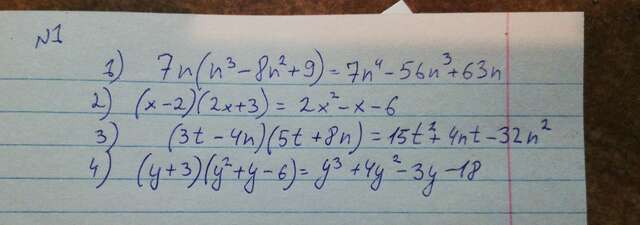 N1
1) 7n(n³-8n²+9)=7n⁴-56n³+63n
2) (x-2)(2x+3)=2x²-x-6
3) (3t-4n)(5t+8n)=15t²+4nt-32n²
4) (y+3)(y²+y-6)=y³+4y²-3y-18